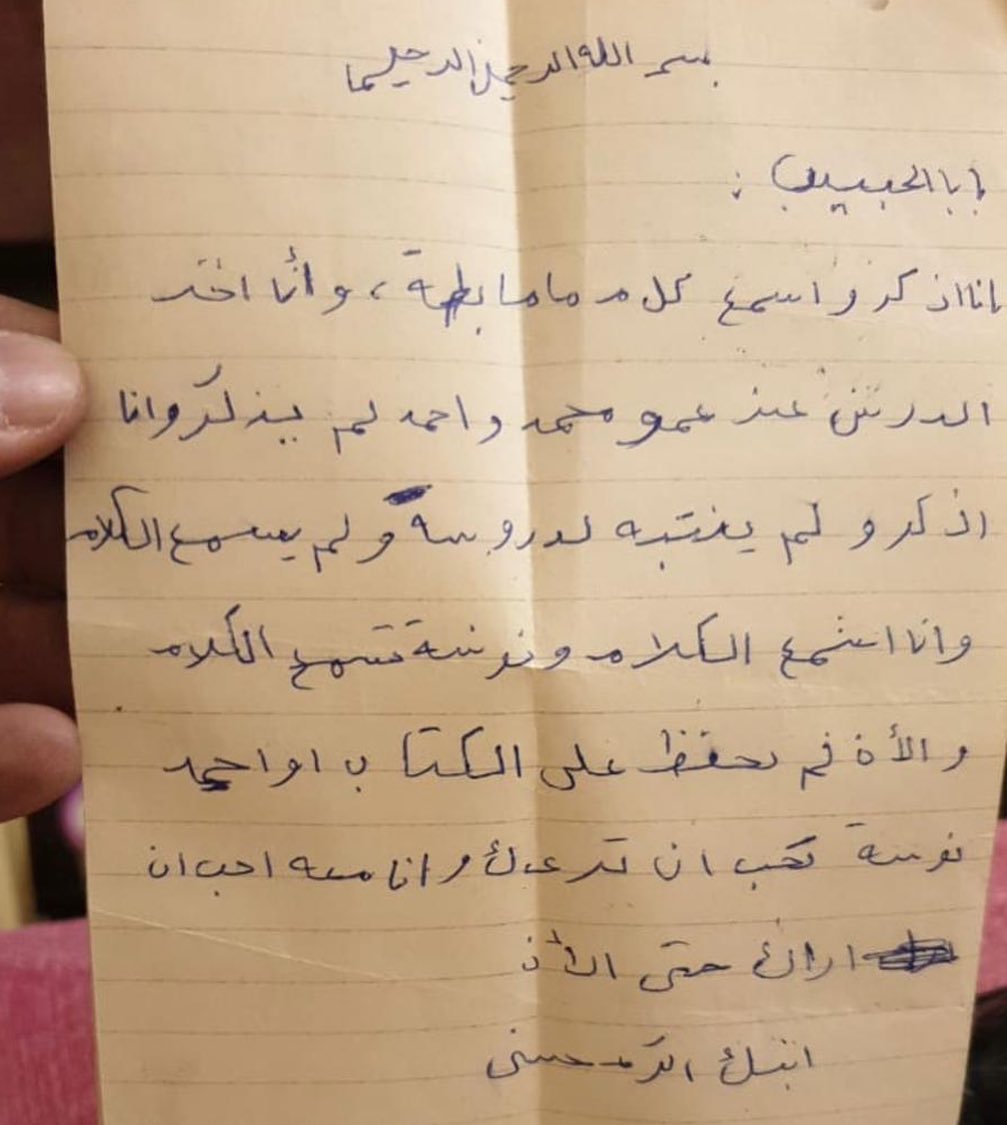 بسم الله الرحمن الرحيم
بابا الحبيب :
انا اذكر و اسمع كلام ماما بطة ، و أنا اخد
الدرس عند عمو محمد و احمد لم يذكر وانا
اذكر و لم ينتبه لدروسة و لم يسمع الكلام
وانا اسمع الكلام ونوسة تسمع الكلام
و تحفظ على الكتاب
نوسة تحب ان و انا احب ان
اراك حتى
ابنك حسنى